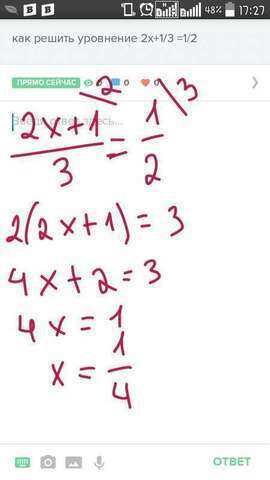 48% 17:27
как решить уровнение 2x+1/3 =1/2
ПРЯМО СЕЙЧАС 0 0 0
2 3
2x+1/3 = 1/2
2(2x+1) = 3
4x+2=3
4x = 1
x = 1/4
ОТВЕТ